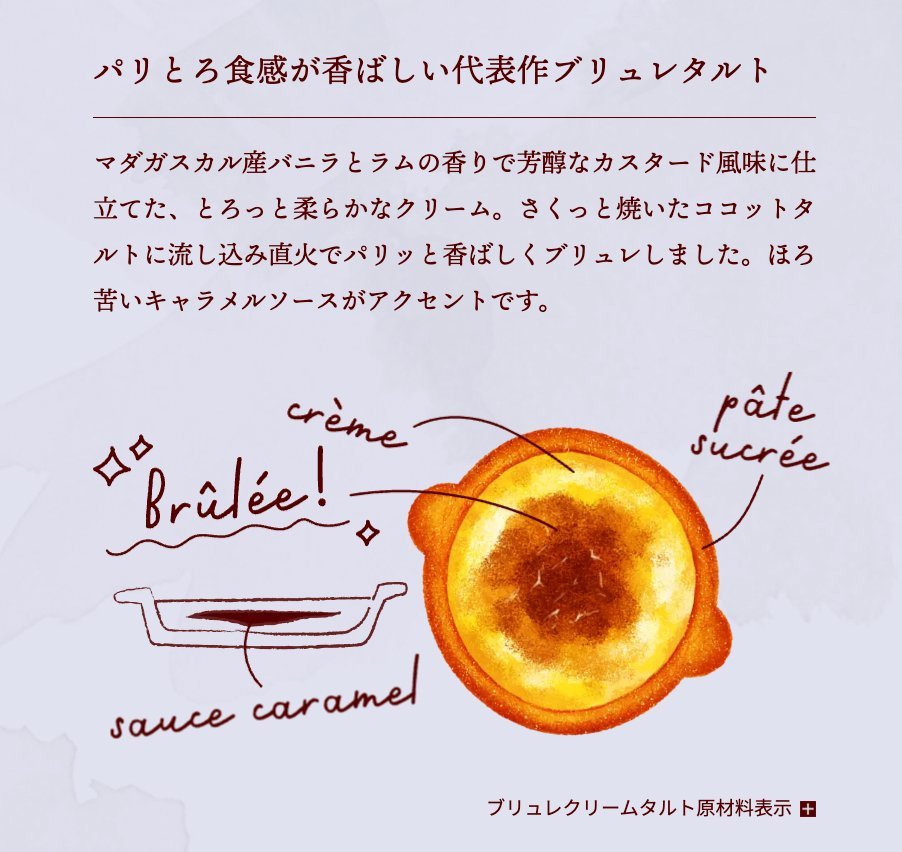 パリとろ食感が香ばしい代表作ブリュレタルト
マダガスカル産バニラとラムの香りで芳醇なカスタード風味に仕
立てた、とろっと柔らかなクリーム。さくっと焼いたココットタ
ルトに流し込み直火でパリッと香ばしくブリュレしました。ほろ
苦いキャラメルソースがアクセントです。
crème
pâte
sucrée
Brûlée!
sauce caramel
ブリュレクリームタルト原材料表示